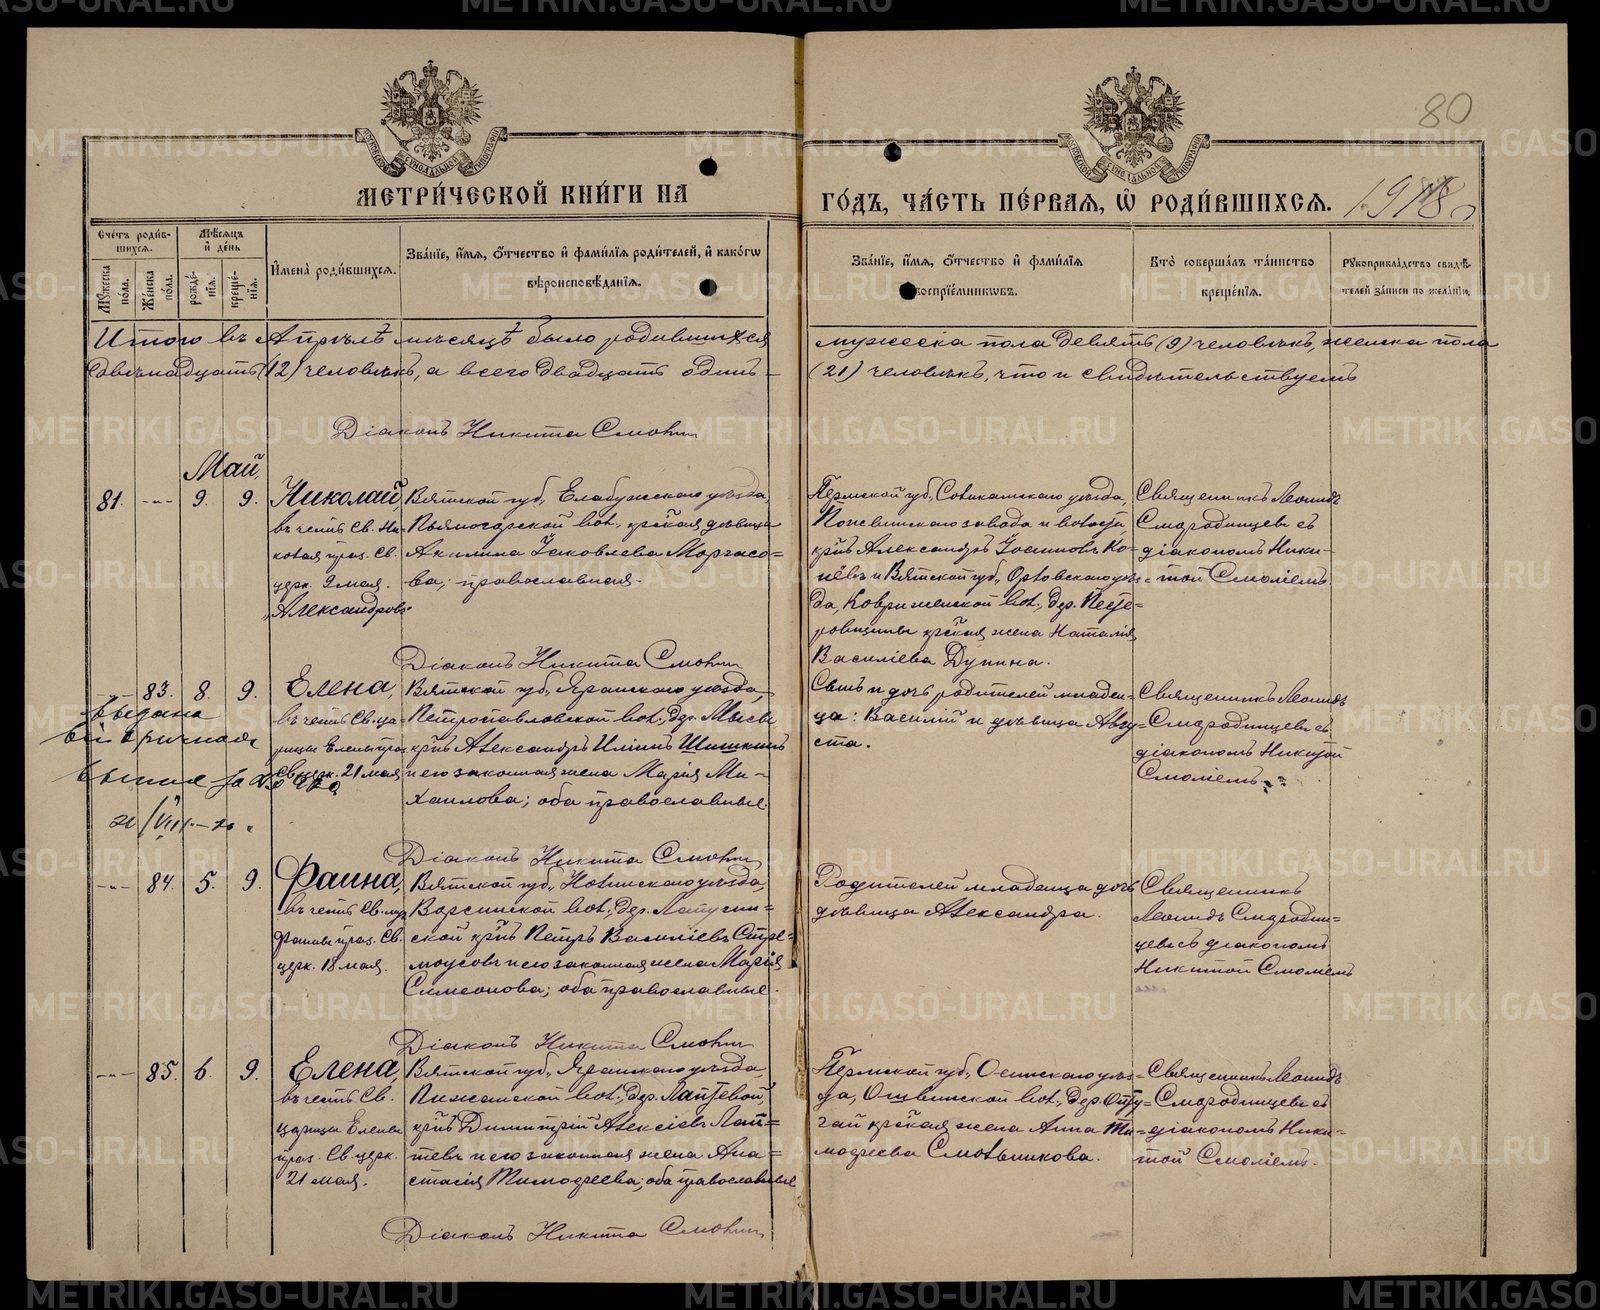 80
МЕТРИЧЕСКОЙ КНИГИ НА ГОДЪ, ЧАСТЬ ПЕРВАЯ, Ѡ РОДИВШИХСЯ. 1918
Счетъ родив-
шихся.
Мужеска пола.
Женска пола.
Мѣсяцъ и день
рожде-
нія.
креще-
нія.
Имена родившихся.
Званіе, имя, отчество и фамилія родителей, и какогѡ
вѣроисповѣданія.
Званіе, имя, отчество и фамилія
воспріемниковъ.
Кто совершалъ таинство
крещенія.
Рукоприкладство свидѣ-
телей записи по желанію.
Итого въ Апрѣлѣ мѣсяцѣ было родившихся мужеска пола девять (9) человѣкъ, женска пола
двѣнадцать (12) человѣкъ, а всего двадцать одинъ (21) человѣкъ, что и свидѣтельствуемъ
Діаконъ Никита
Май.
81. -"- 9. 9.
Николай,
въ честь Св. Ни-
колая праз. Св.
церк. 9 мая.
"Александровъ"
Вятской губ., Елабужскаго уѣзда,
вол., кр-ская дѣвица
Акилина Іаковлева
ва; православная.
Пермской губ., Соликамскаго уѣзда,
Пожвинскаго завода и волости,
кр-нъ Александръ
и Вятской губ., Орловскаго уѣз-
да, вол., дер.
кр-ская жена Наталія
Василіева Дупина.
Священникъ Леонидъ
Смородинцевъ съ
діакономъ Ники-
той
Діаконъ Никита
-"- 83. 8. 9.
Елена,
въ честь Св. ца-
рицы Елены праз.
Св. церк. 21 мая
Вятской губ., Яранскаго уѣзда,
Петропавловской вол., дер.
кр-нъ Александръ Иліинъ Шишкинъ
и его законная жена Марія Ми-
хаилова; оба православные.
Сынъ и дочь родителей младен-
ца: Василій и дѣвица Авгу-
ста.
Священникъ Леонидъ
Смородинцевъ съ
діакономъ Никитой
выдана
21/VIII-20.
Діаконъ Никита
-"- 84. 5. 9.
Фаина,
въ честь Св. муч.
Фаины праз. Св.
церк. 18 мая.
Вятской губ., Нолинскаго уѣзда,
вол., дер.
ской кр-нъ Петръ Василіевъ Стре-
моусовъ и его законная жена Марія
Симеонова; оба православные.
Родителей младенца дочь
дѣвица Александра.
Священникъ
Леонидъ Смородин-
цевъ съ діакономъ
Никитой
Діаконъ Никита
-"- 85. 6. 9.
Елена,
въ честь Св.
царицы Елены
праз. Св. церк.
21 мая.
Вятской губ., Яранскаго уѣзда,
Пижанской вол., дер. Лаптевой,
кр-нъ Димитрій Алексіевъ Лап-
тевъ и его законная жена Ана-
стасія Тимофеева; оба православные
Пермской губ., Осинскаго уѣз-
да, Ошвинской вол., дер.
кр-ская жена Анна Ти-
мофеева Смольникова.
Священникъ Леонидъ
Смородинцевъ съ
діакономъ Ники-
той
Діаконъ Никита
METRIKI.GASO-URAL.RU